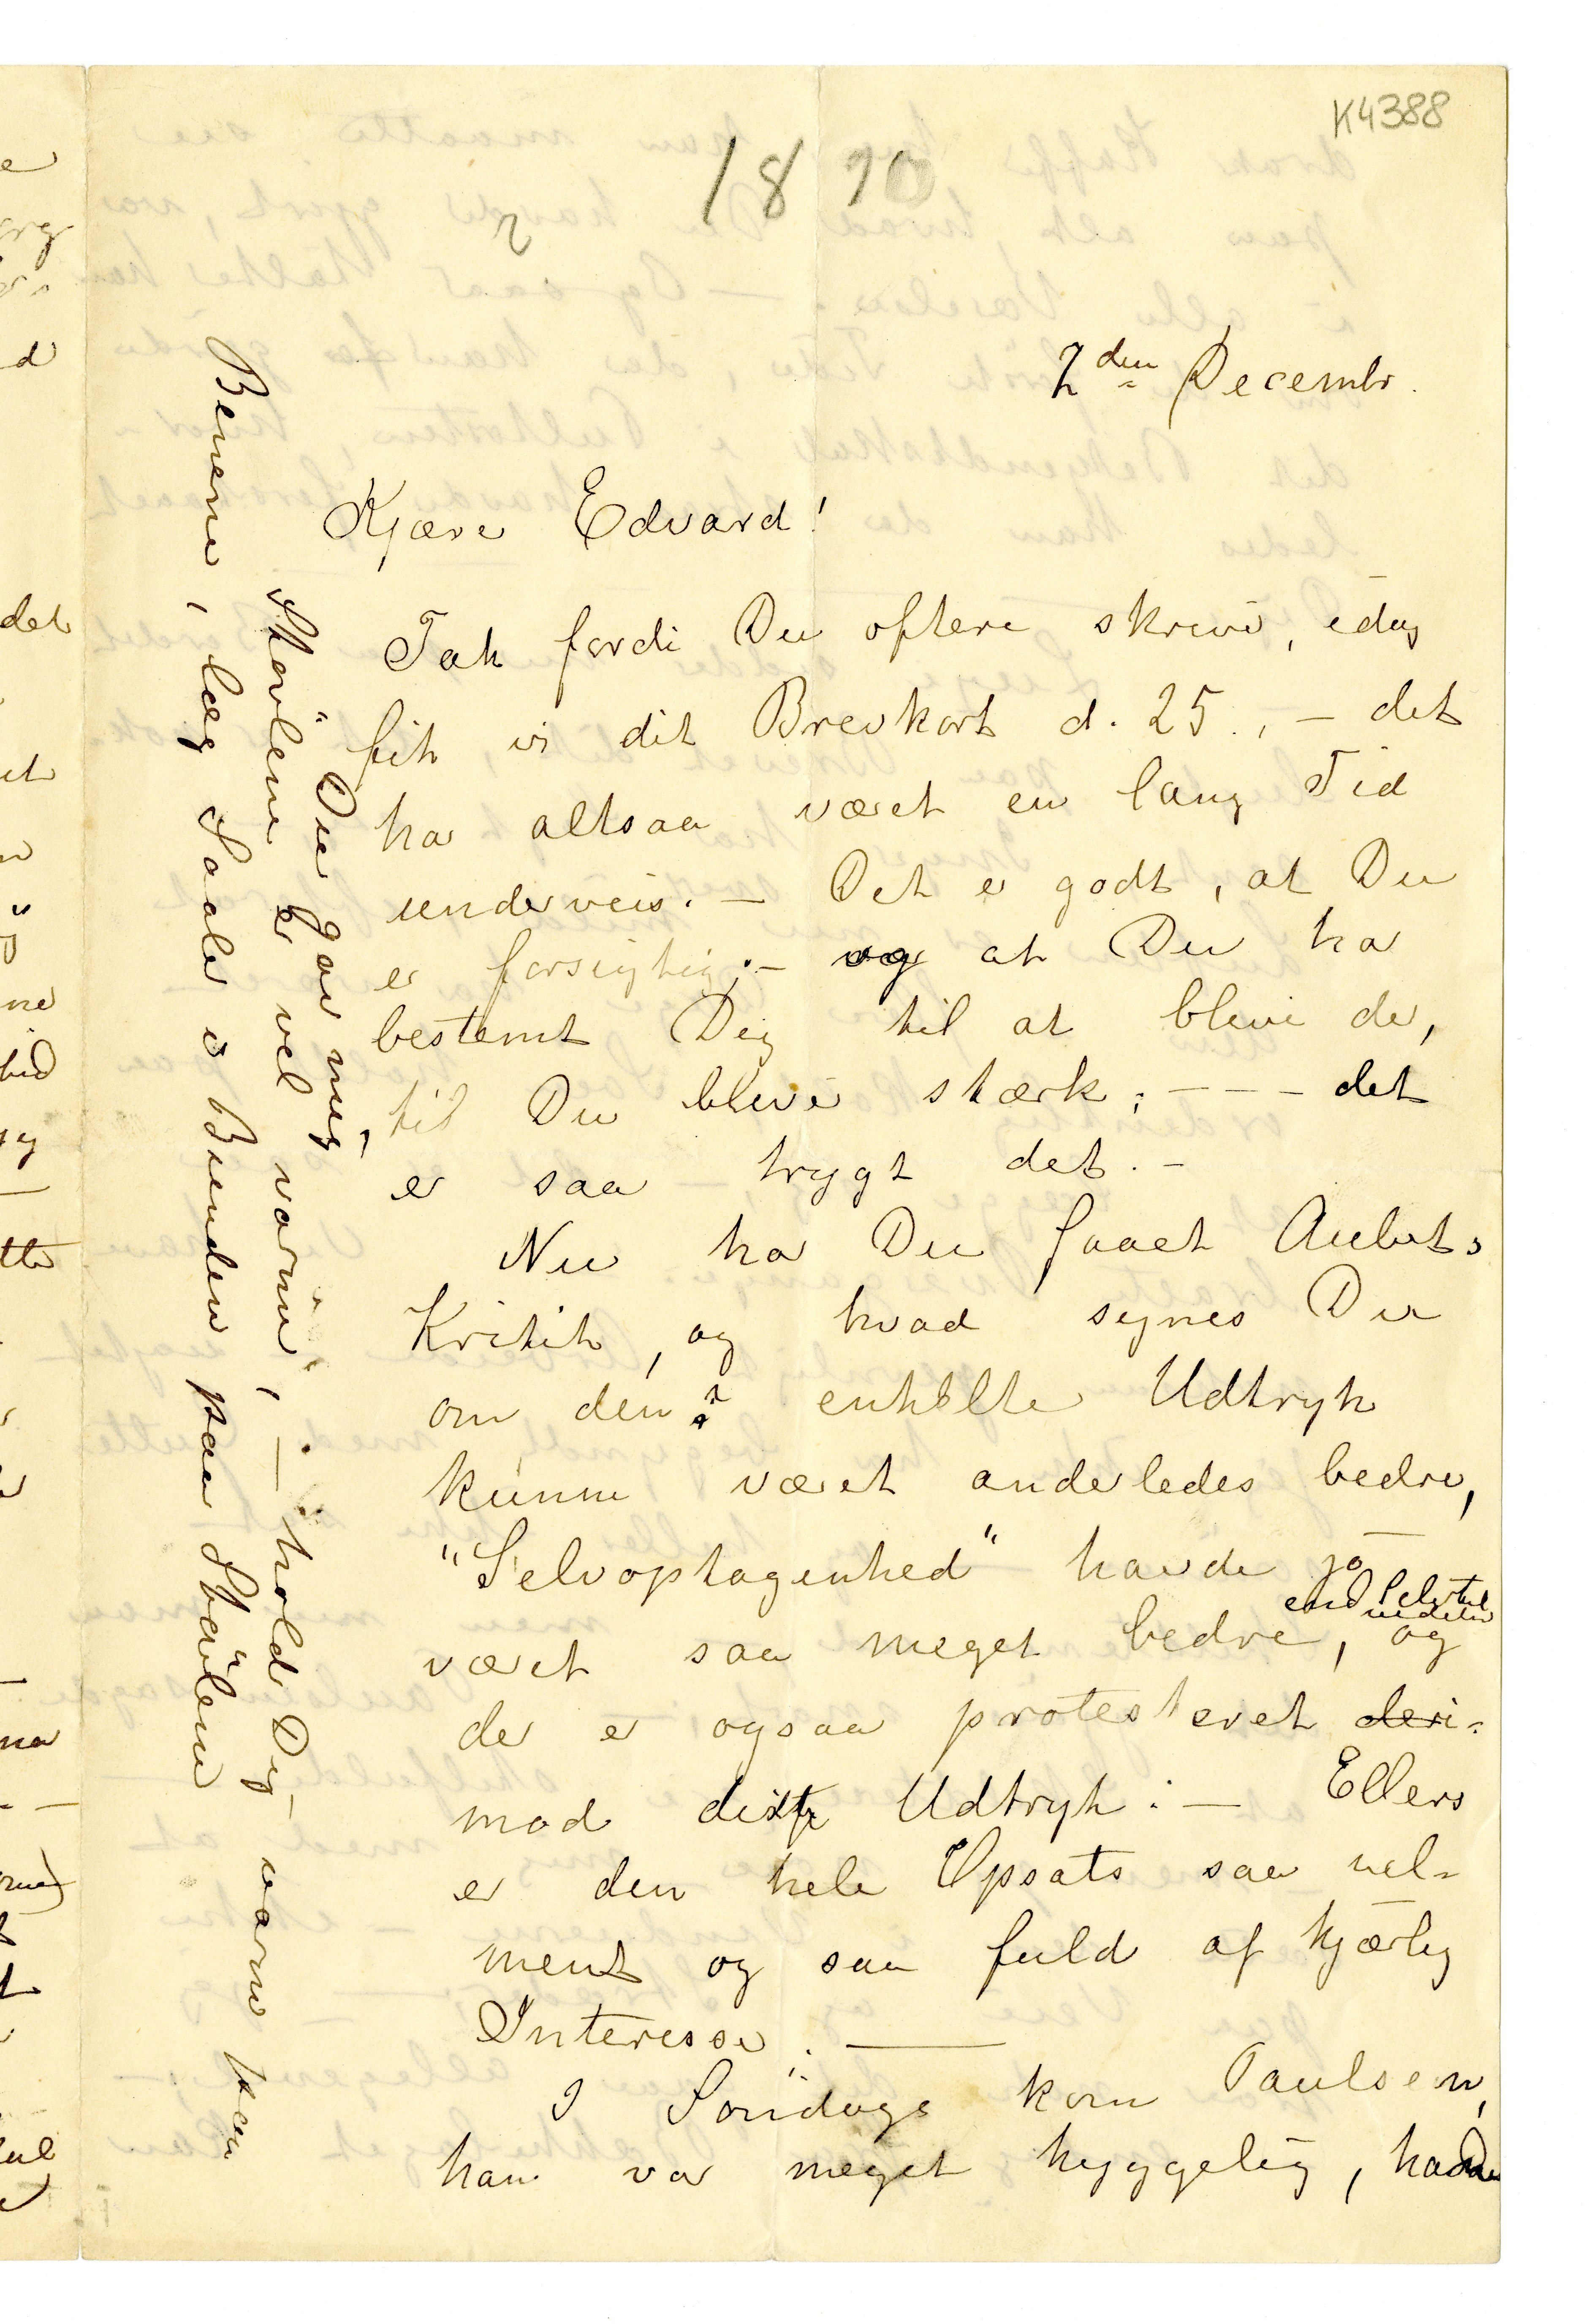 K4388
1890
2den Decembr.
Kjære Edvard!
Tak fordi Du oftere skriver, idag
fik vi dit Brevkort d. 25., – det
har altsaa været en lang Tid
underveis. – Det er godt, at Du
er forsigtig; – og at Du har
bestemt Dig til at blive der,
til Du bliver stærk; – – – det
er saa trygt det. –
Nu har Du faaet Auberts
Kritik, og hvad synes Du
om den? enkelte Udtryk
kunne været anderledes bedre,
"Selvoptagenhed" havde jo
været saa meget bedre, og
end
der er ogsaa protesteret deri-
mod dette Udtryk. – Ellers
er den hele Opsats saa vel-
ment og saa fuld af kjærlig
Interesse. –
I Søndags kom Paulsen,
han var meget hyggelig, havde
Du Jar mig,
Støvlene er vel varme, – hold Dig varm paa
Benene, læg Saaler i Bunden paa Støvlene